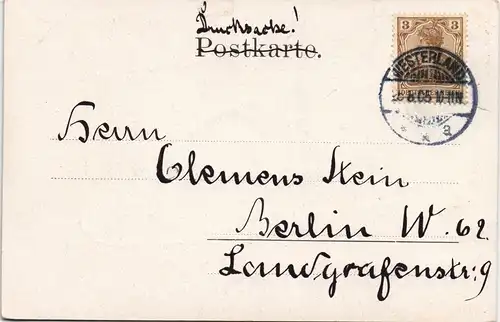 Drucksache!
Postkarte.
3 3
WESTERLAND
8.05.10-11N
a
Herrn
Clemens Stein
Berlin W. 62.
Landgrafenstr: 9